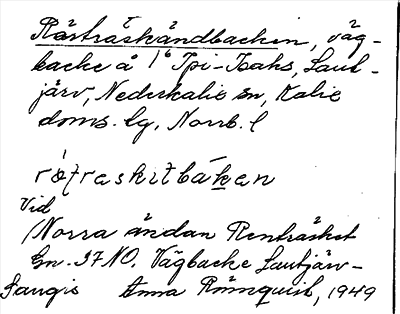 Rästräskändbacken, väg-
backe å 1⁶ Ipi-Isaks, Laut-
järv, Nederkalix sn, Kalix
doms. lg, Norrb. l
røtraskitbakən
Vid
Norra ändan Renträsket
Gn. 37 NO. Vägbacke Lautjärv-
Sangis Anna Rönnquist, 1949